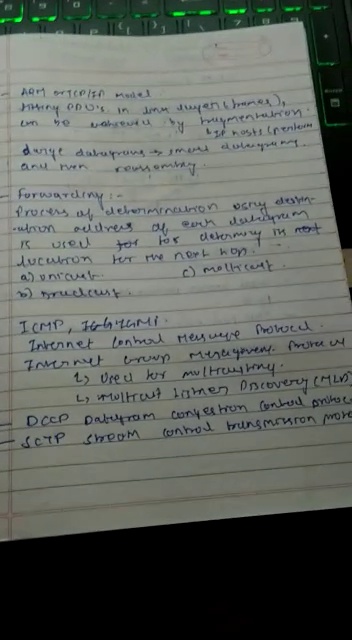 - ARM or TCP/IP model
fitting PDU's in link layer (frames),
can be achieved by fragmentation.
↳ IP hosts (perform
large datagrams → small datagrams.
and non reassembly.
- Forwarding :-
Process of determination using destin-
-ation address of each datagram
is used for for determining its next
location for the next hop.
a) unicast c) multicast
b) broadcast.
ICMP, IGMP
Internet Control Message Protocol.
Internet Group Management Protocol
↳ Used for multicasting.
↳ Multicast Listner Discovery (MLD)
- DCCP Datagram congestion control protoco
- SCTP Stream control transmission proto